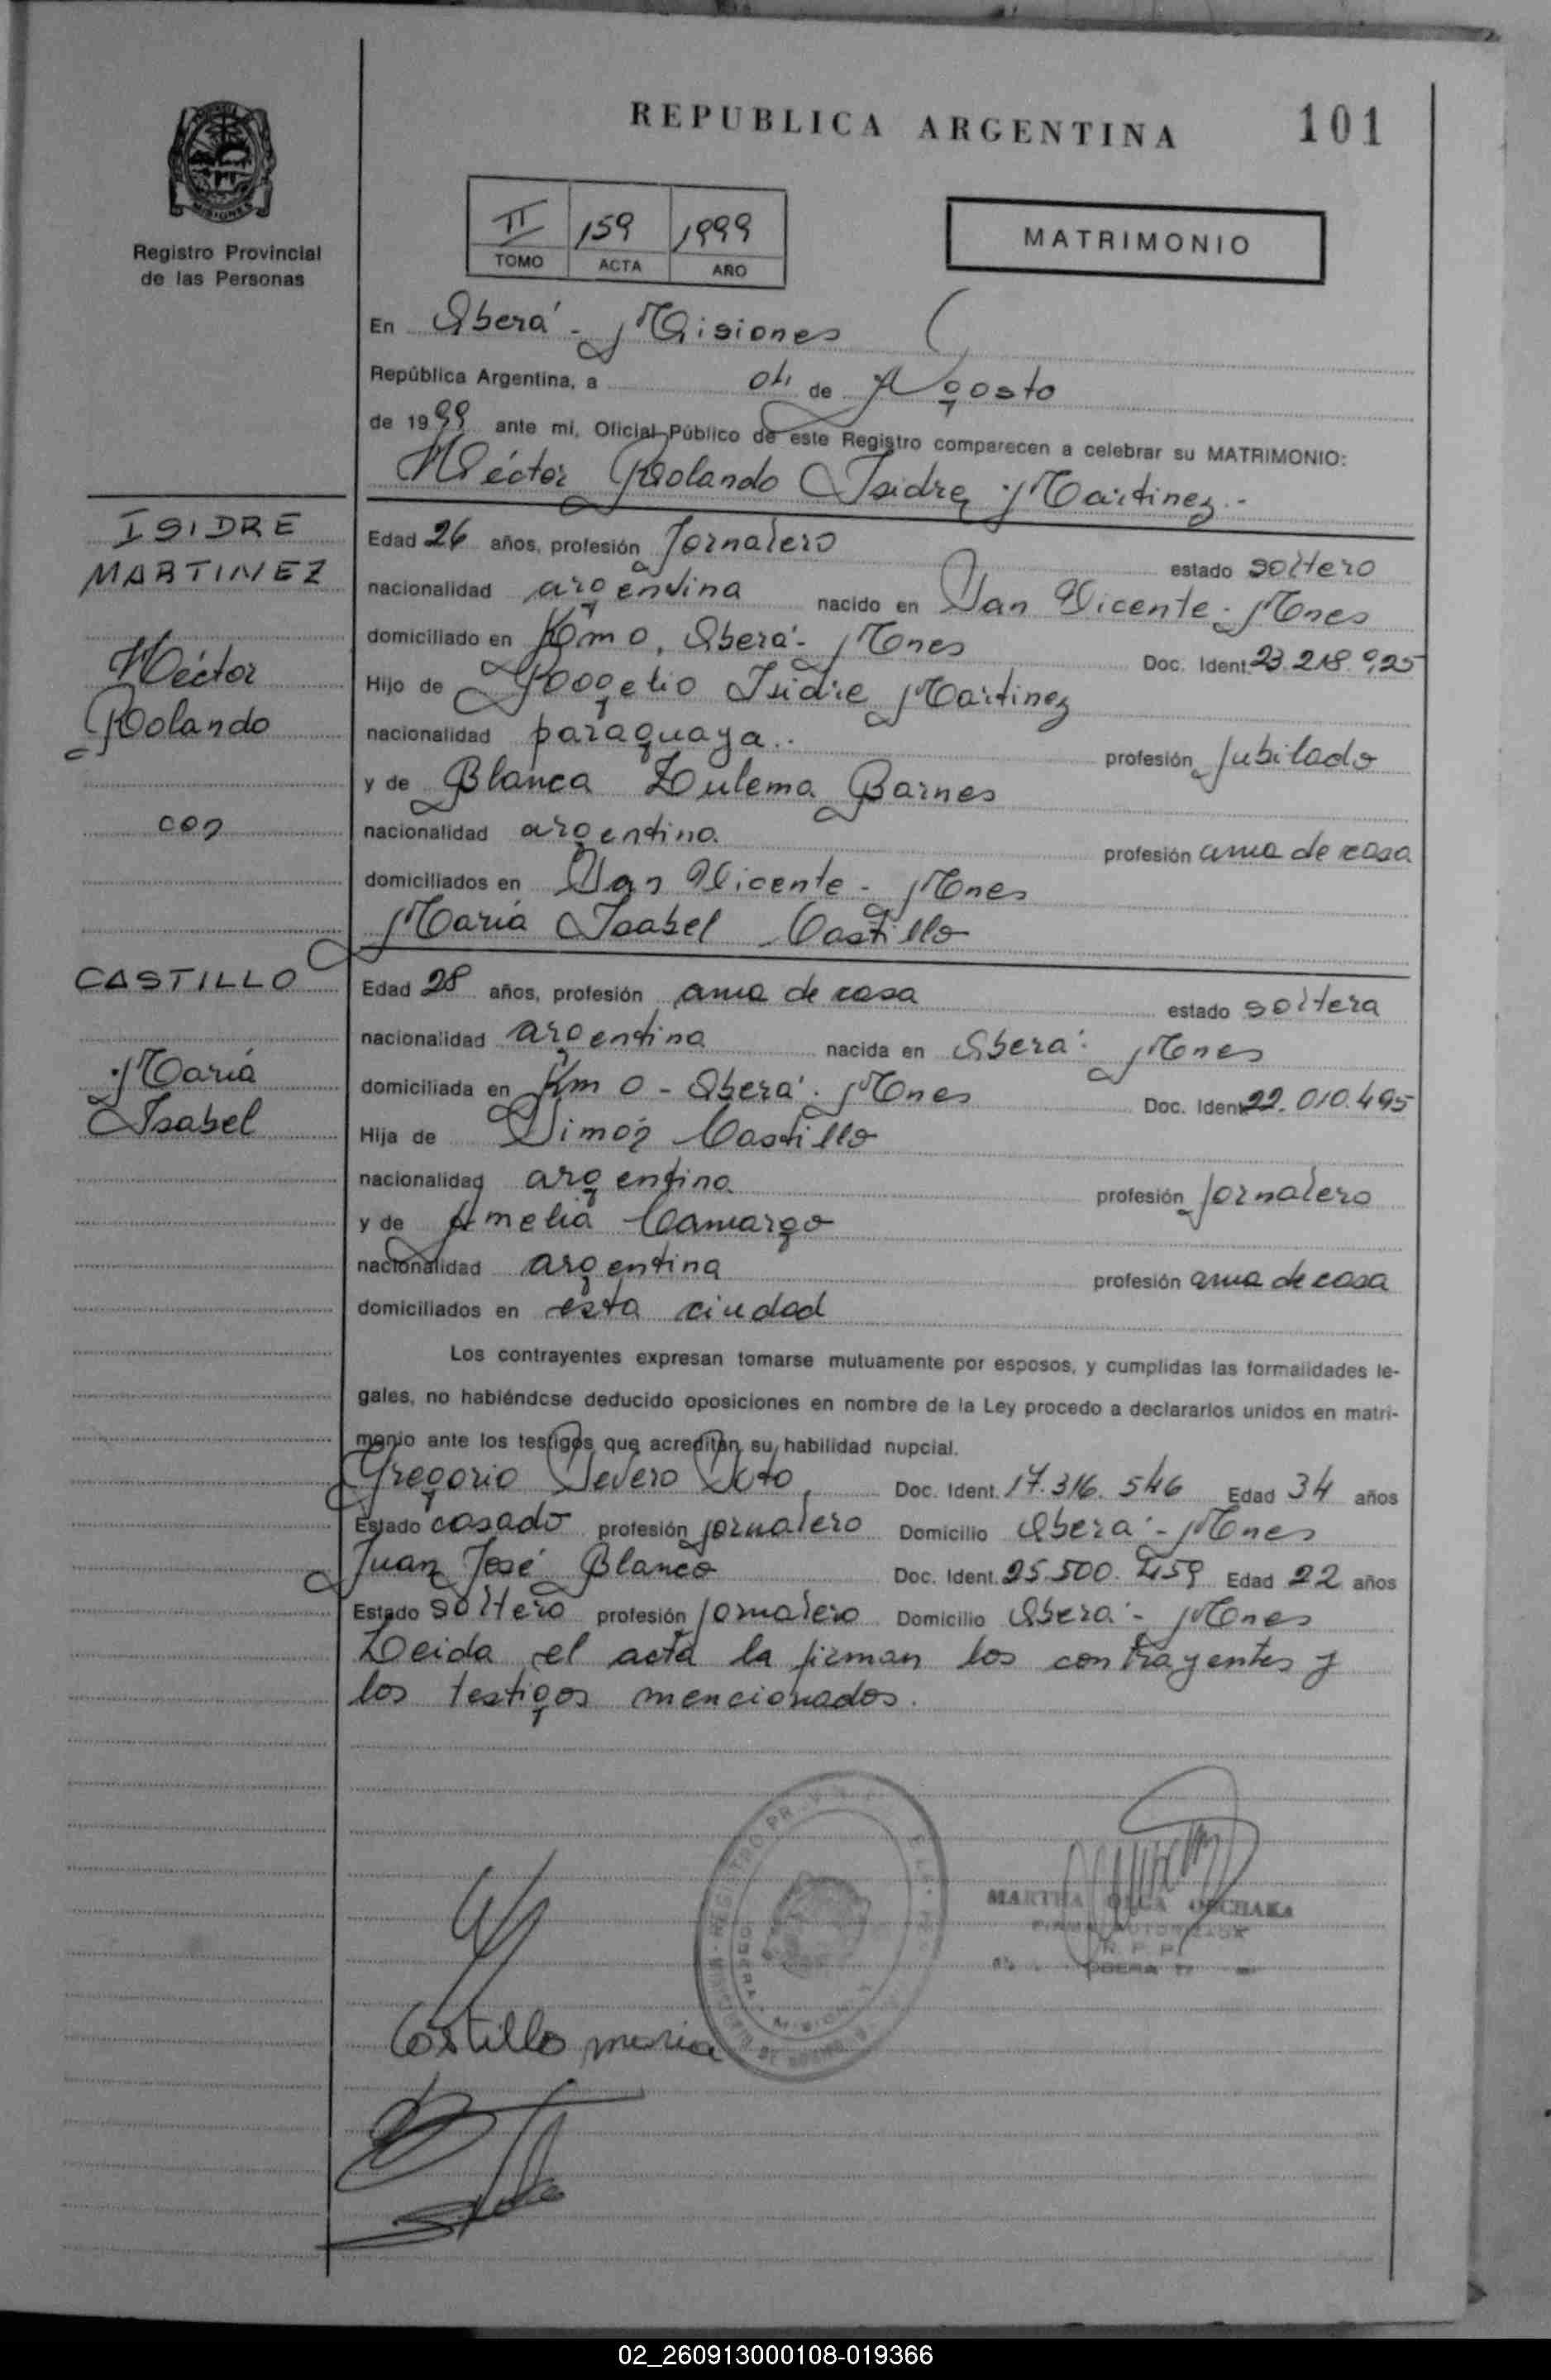 REPUBLICA ARGENTINA
101
MISIONES
Registro Provincial
de las Personas
II 159 1999
TOMO ACTA AÑO
MATRIMONIO
En Oberá - Misiones
República Argentina, a 04 de Agosto
de 1999 ante mí, Oficial Público de este Registro comparecen a celebrar su MATRIMONIO:
Héctor Rolando Isidre Martinez.-
ISIDRE
MARTINEZ
Héctor
Rolando
con
CASTILLO
María
Isabel
Edad 26 años, profesión Jornalero estado soltero
nacionalidad argentina nacido en San Vicente - Mnes
domiciliado en Km 0, Oberá - Mnes Doc. Ident. 23.218.925
Hijo de Rogelio Isidre Martinez
nacionalidad paraguaya.. profesión Jubilado
y de Blanca Zulema Barnes
nacionalidad argentina profesión ama de casa
domiciliados en San Vicente - Mnes
María Isabel Castillo
Edad 28 años, profesión ama de casa estado soltera
nacionalidad argentina nacida en Oberá - Mnes
domiciliada en Km 0 - Oberá - Mnes Doc. Ident. 22.010.495
Hija de Simón Castillo
nacionalidad argentina profesión Jornalero
y de Amelia Camargo
nacionalidad argentina profesión ama de casa
domiciliados en esta ciudad
Los contrayentes expresan tomarse mutuamente por esposos, y cumplidas las formalidades le-
gales, no habiéndose deducido oposiciones en nombre de la Ley procedo a declararlos unidos en matri-
monio ante los testigos que acreditan su habilidad nupcial.
Gregorio Severo Soto Doc. Ident. 17.316.546 Edad 34 años
Estado casado profesión jornalero Domicilio Oberá - Mnes
Juan José Blanco Doc. Ident. 25.500.459 Edad 22 años
Estado soltero profesión Jornalero Domicilio Oberá - Mnes
Leida el acta la firman los contrayentes y
los testigos mencionados.
MARTHA OLGA
FIRMA AUTORIZADA
R. P. P.
OBERA
Castillo maria
02_260913000108-019366